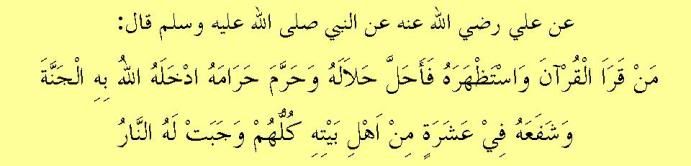 عن علي رضي الله عنه عن النبي صلى الله عليه وسلم قال:
مَنْ قَرَا الْقُرْآنَ وَاسْتَظْهَرَهُ فَأَحَلَّ حَلاَلَهُ وَحَرَّمَ حَرَامَهُ ادْخَلَهُ اللهُ بِهِ الْجَنَّةَ
وَشَفَعَهُ فِيْ عَشَرَةٍ مِنْ اَهْلِ بَيْتِهِ كُلُّهُمْ وَجَبَتْ لَهُ النَّارُ